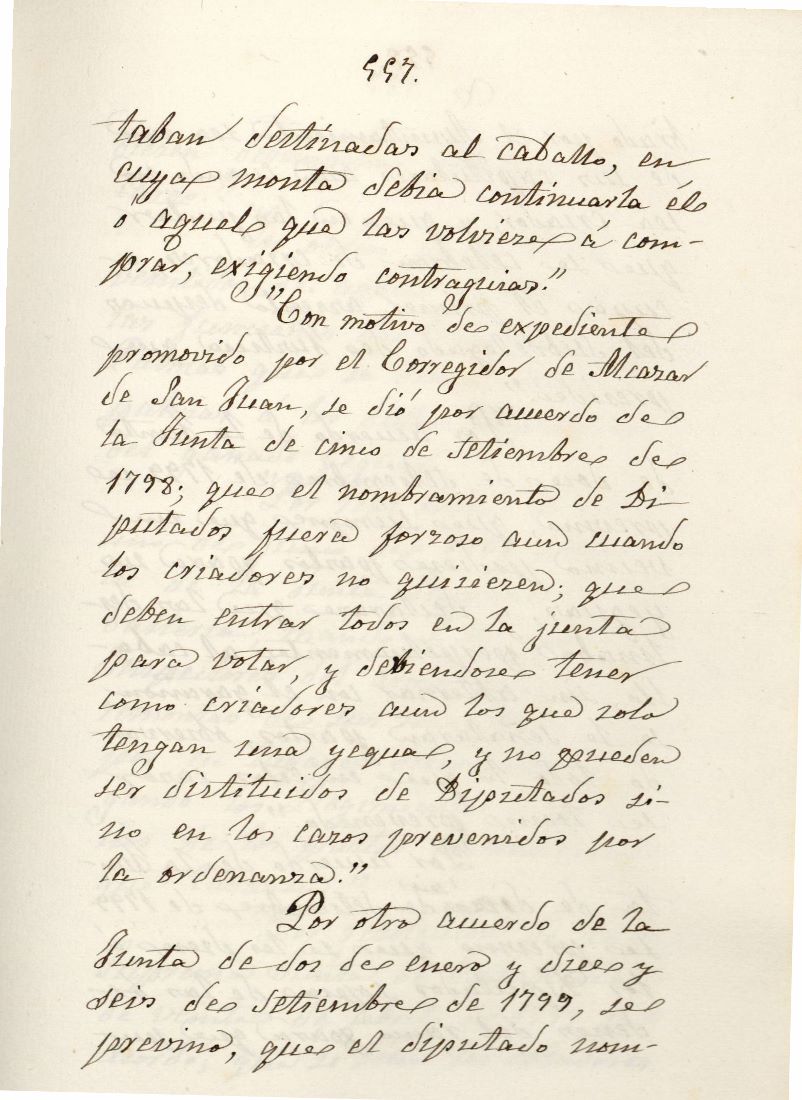 557.
taban destinadas al caballo, en
cuya monta debia continuarla él
o aquel que las volviese á com-
prar, exigiendo contraguias."
"Con motivo de expediente
promovido por el Corregidor de Alcazar
de San Juan, se dió por acuerdo de
la Junta de cinco de Setiembre de
1798; que el nombramiento de Di-
putados fuera forzoso aun cuando
los criadores no quisiesen; que
deben entrar todos en la junta
para votar, y debiendose tener
como criadores aun los que solo
tengan una yegua, y no pueden
ser distituidos de Diputados si-
no en los casos prevenidos por
la ordenanza."
Por otro acuerdo de la
Junta de dos de enero y diez y
seis de Setiembre de 1799, se
previno, que el diputado nom-